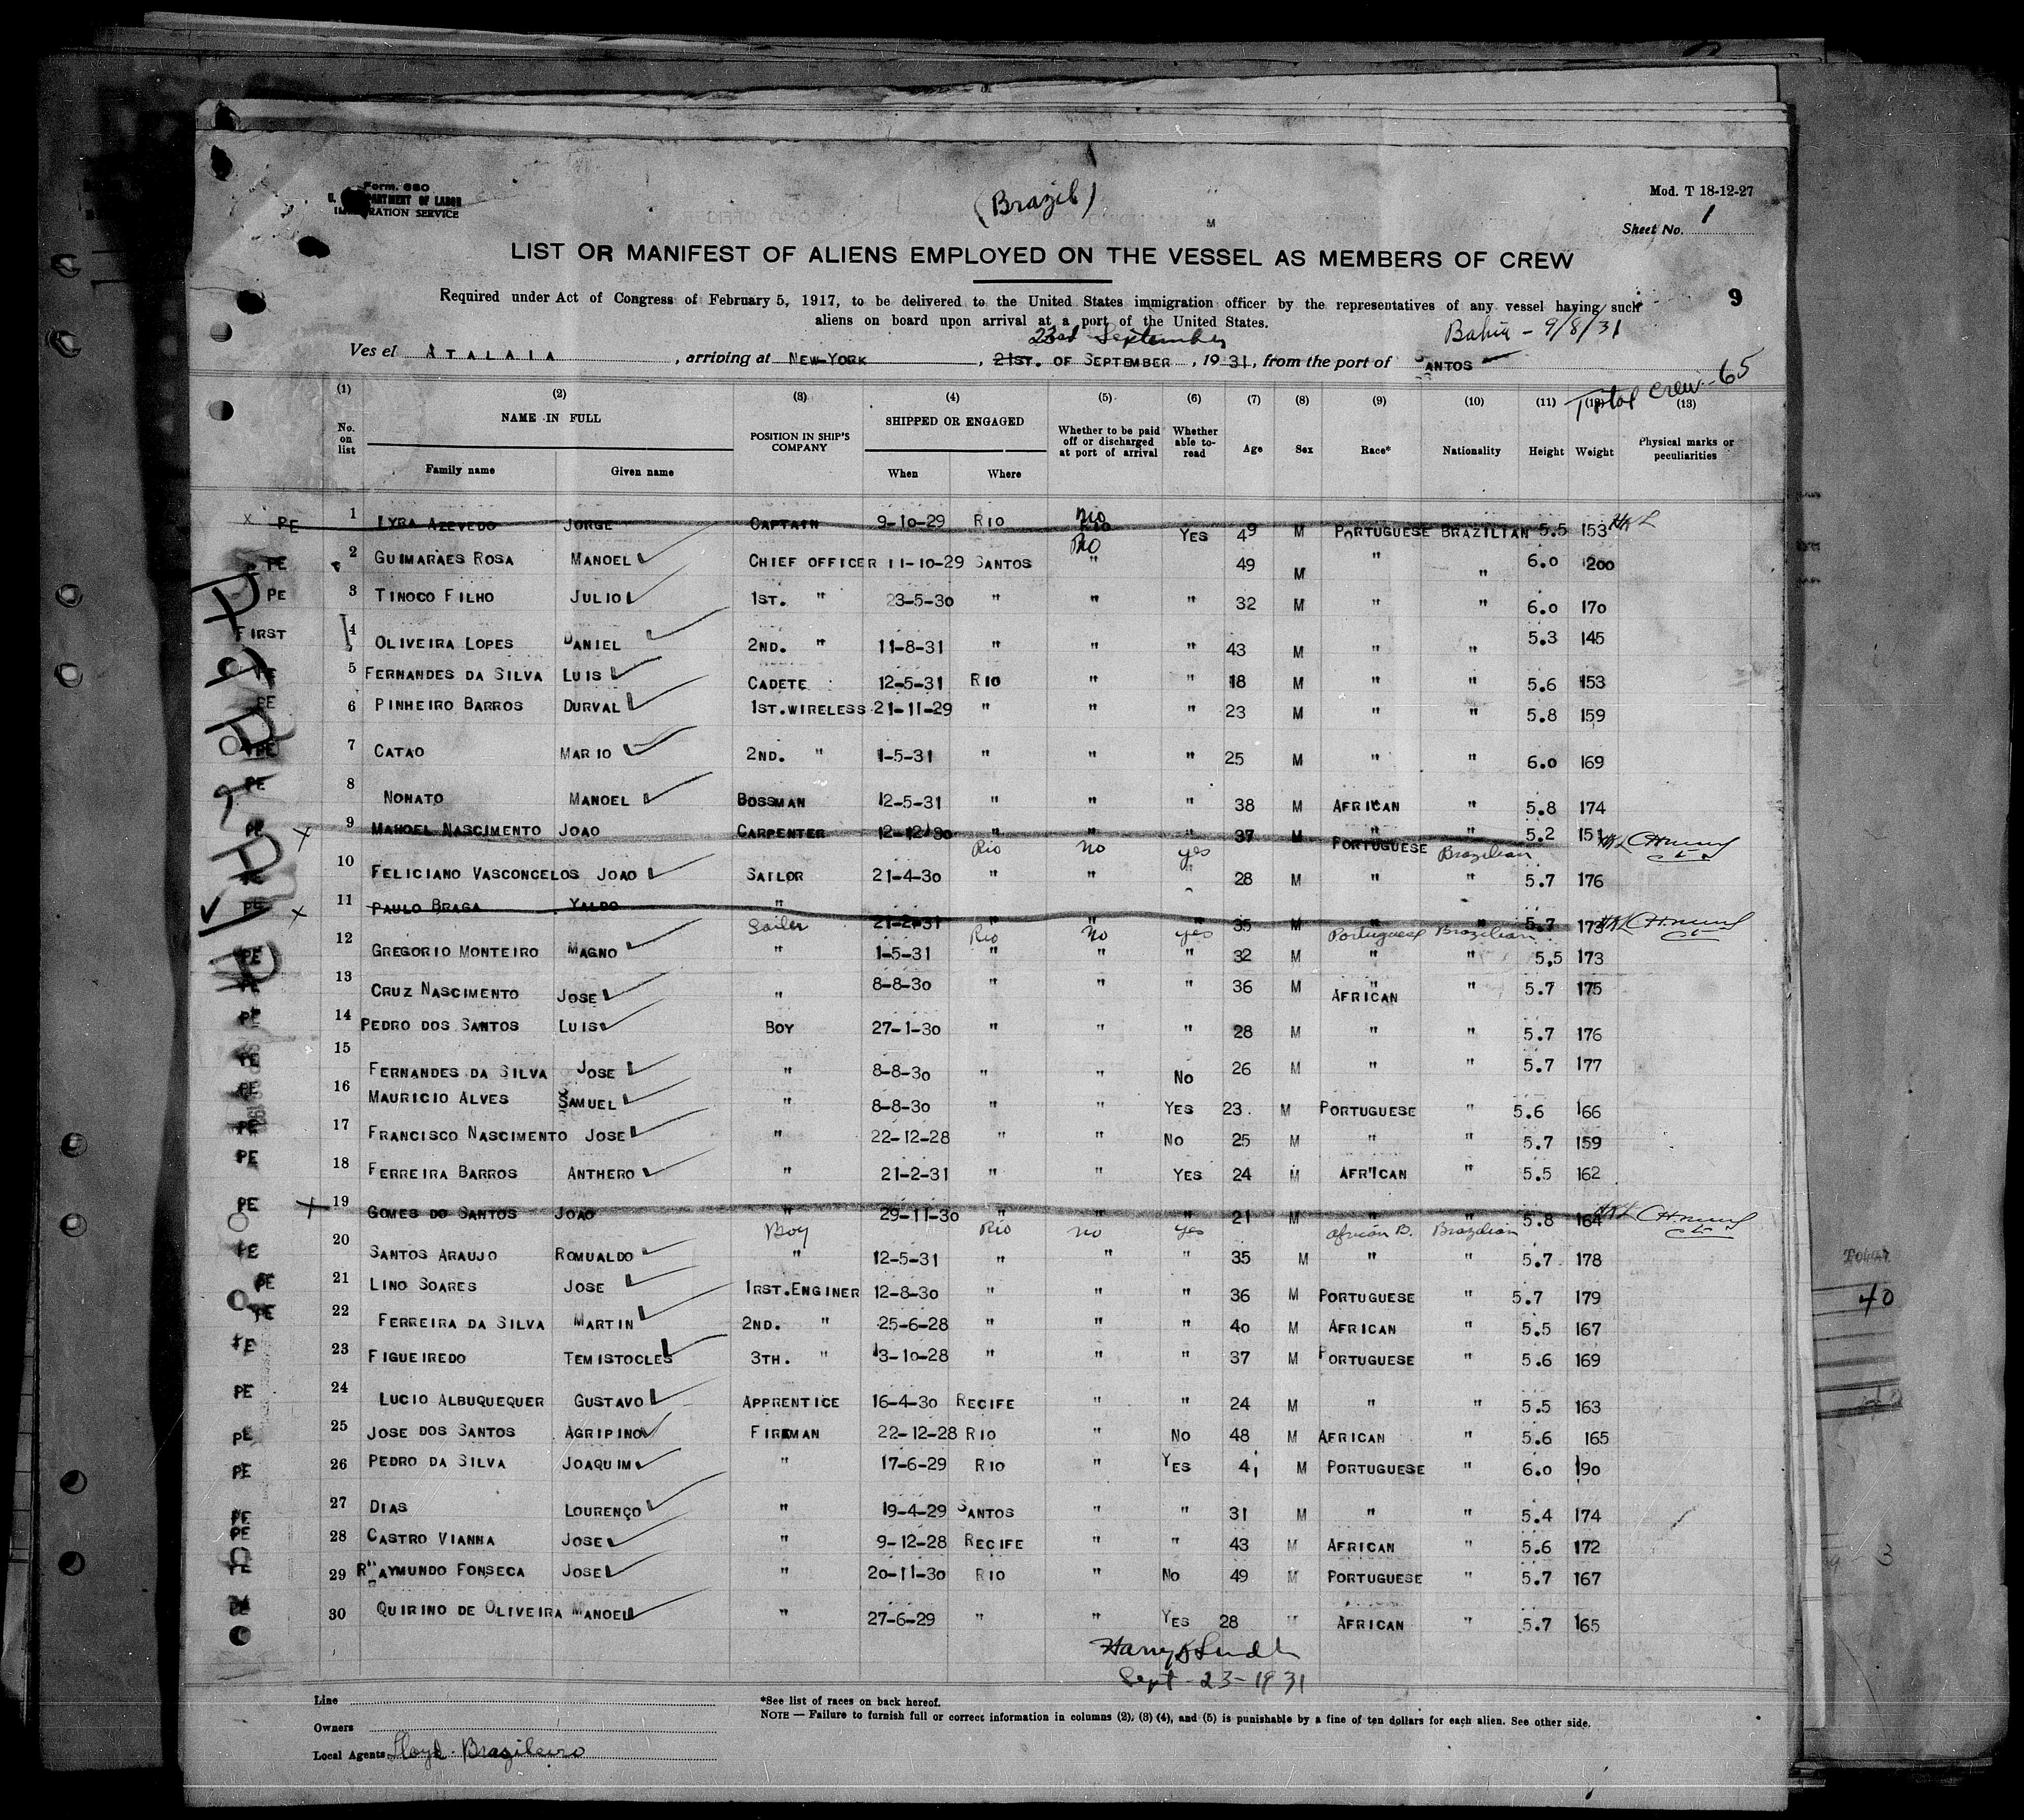 Form. 680
U. S. DEPARTMENT OF LABOR
IMMIGRATION SERVICE
(Brazil)
Mod. T 18-12-27
Sheet No. 1
LIST OR MANIFEST OF ALIENS EMPLOYED ON THE VESSEL AS MEMBERS OF CREW
Required under Act of Congress of February 5, 1917, to be delivered to the United States immigration officer by the representatives of any vessel having such
9
aliens on board upon arrival at a port of the United States.
23rd September
Bahia - 9/8/31
Ves el ATALAIA, arriving at NEW-YORK, 21ST. OF SEPTEMBER, 1931, from the port of SANTOS
Total Crew - 65
(1) (2) (3) (4) (5) (6) (7) (8) (9) (10) (11) (12) (13)
No. on list NAME IN FULL Family name Given name POSITION IN SHIP'S COMPANY SHIPPED OR ENGAGED When Where Whether to be paid off or discharged at port of arrival Whether able to read Age Sex Race* Nationality Height Weight Physical marks or peculiarities
x PE 1 LYRA AZEVEDO JORGE CAPTAIN 9-10-29 RIO No YES 49 M PORTUGUESE BRAZILIAN 5.5 153 HKL
No
PE 2 GUIMARAES ROSA MANOEL CHIEF OFFICER 11-10-29 SANTOS " 49 M " " 6.0 200
PE 3 TINOCO FILHO JULIO 1ST. " 23-5-30 " " " 32 M " " 6.0 170
FIRST 4 OLIVEIRA LOPES DANIEL 2ND. " 11-8-31 " " " 43 M " " 5.3 145
PE 5 FERNANDES DA SILVA LUIS CADETE 12-5-31 RIO " " 18 M " " 5.6 153
PE 6 PINHEIRO BARROS DURVAL 1ST.WIRELESS 21-11-29 " " " 23 M " " 5.8 159
PE 7 CATAO MARIO 2ND. " 1-5-31 " " " 25 M " " 6.0 169
PE 8 NONATO MANOEL BOSSMAN 12-5-31 " " " 38 M AFRICAN " 5.8 174
PE x 9 MANOEL NASCIMENTO JOAO CARPENTER 12-12-30 " " " 37 M " " 5.2 151
Rio No yes PORTUGUESE Brazilian
PE 10 FELICIANO VASCONCELOS JOAO SAILOR 21-4-30 " " " 28 M " " 5.7 176
PE x 11 PAULO BRAGA YALDO " 21-2-31 " " " 35 M " " 5.7 173
Sailer Rio No yes Portuguese Brazilian
PE 12 GREGORIO MONTEIRO MAGNO " 1-5-31 " " " 32 M " " 5,5 173
PE 13 CRUZ NASCIMENTO JOSE " 8-8-30 " " " 36 M AFRICAN " 5.7 175
PE 14 PEDRO DOS SANTOS LUIS BOY 27-1-30 " " " 28 M " " 5.7 176
PE 15 FERNANDES DA SILVA JOSE " 8-8-30 " " No 26 M " " 5.7 177
PE 16 MAURICIO ALVES SAMUEL " 8-8-30 " " YES 23. M PORTUGUESE " 5.6 166
PE 17 FRANCISCO NASCIMENTO JOSE " 22-12-28 " " No 25 M " " 5.7 159
PE 18 FERREIRA BARROS ANTHERO " 21-2-31 " " YES 24 M AFRICAN " 5.5 162
PE x 19 GOMES DO SANTOS JOAO " 29-11-30 " " " 21 M " " 5.8 164
Boy Rio no yes african B. Brazilian
PE 20 SANTOS ARAUJO ROMUALDO " 12-5-31 " " " 35 M " " 5.7 178
PE 21 LINO SOARES JOSE 1RST.ENGINER 12-8-30 " " " 36 M PORTUGUESE " 5.7 179
PE 22 FERREIRA DA SILVA MARTIN 2ND. " 25-6-28 " " " 40 M AFRICAN " 5.5 167
PE 23 FIGUEIREDO TEMISTOCLES 3TH. " 13-10-28 " " " 37 M PORTUGUESE " 5.6 169
PE 24 LUCIO ALBUQUEQUER GUSTAVO APPRENTICE 16-4-30 RECIFE " " 24 M " " 5.5 163
PE 25 JOSE DOS SANTOS AGRIPINO FIREMAN 22-12-28 RIO " No 48 M AFRICAN " 5.6 165
PE 26 PEDRO DA SILVA JOAQUIM " 17-6-29 RIO " YES 41 M PORTUGUESE " 6.0 190
PE 27 DIAS LOURENÇO " 19-4-29 SANTOS " " 31 M " " 5.4 174
PE 28 CASTRO VIANNA JOSE " 9-12-28 RECIFE " " 43 M AFRICAN " 5.6 172
PE 29 RAYMUNDO FONSECA JOSE " 20-11-30 RIO " No 49 M PORTUGUESE " 5.7 167
PE 30 QUIRINO DE OLIVEIRA MANOEL " 27-6-29 " " YES 28 M AFRICAN " 5.7 165
Sept - 23 - 1931
Line
Owners
Local Agents Lloyd Brazileiro
*See list of races on back hereof.
NOTE — Failure to furnish full or correct information in columns (2), (3) (4), and (5) is punishable by a fine of ten dollars for each alien. See other side.
40
3